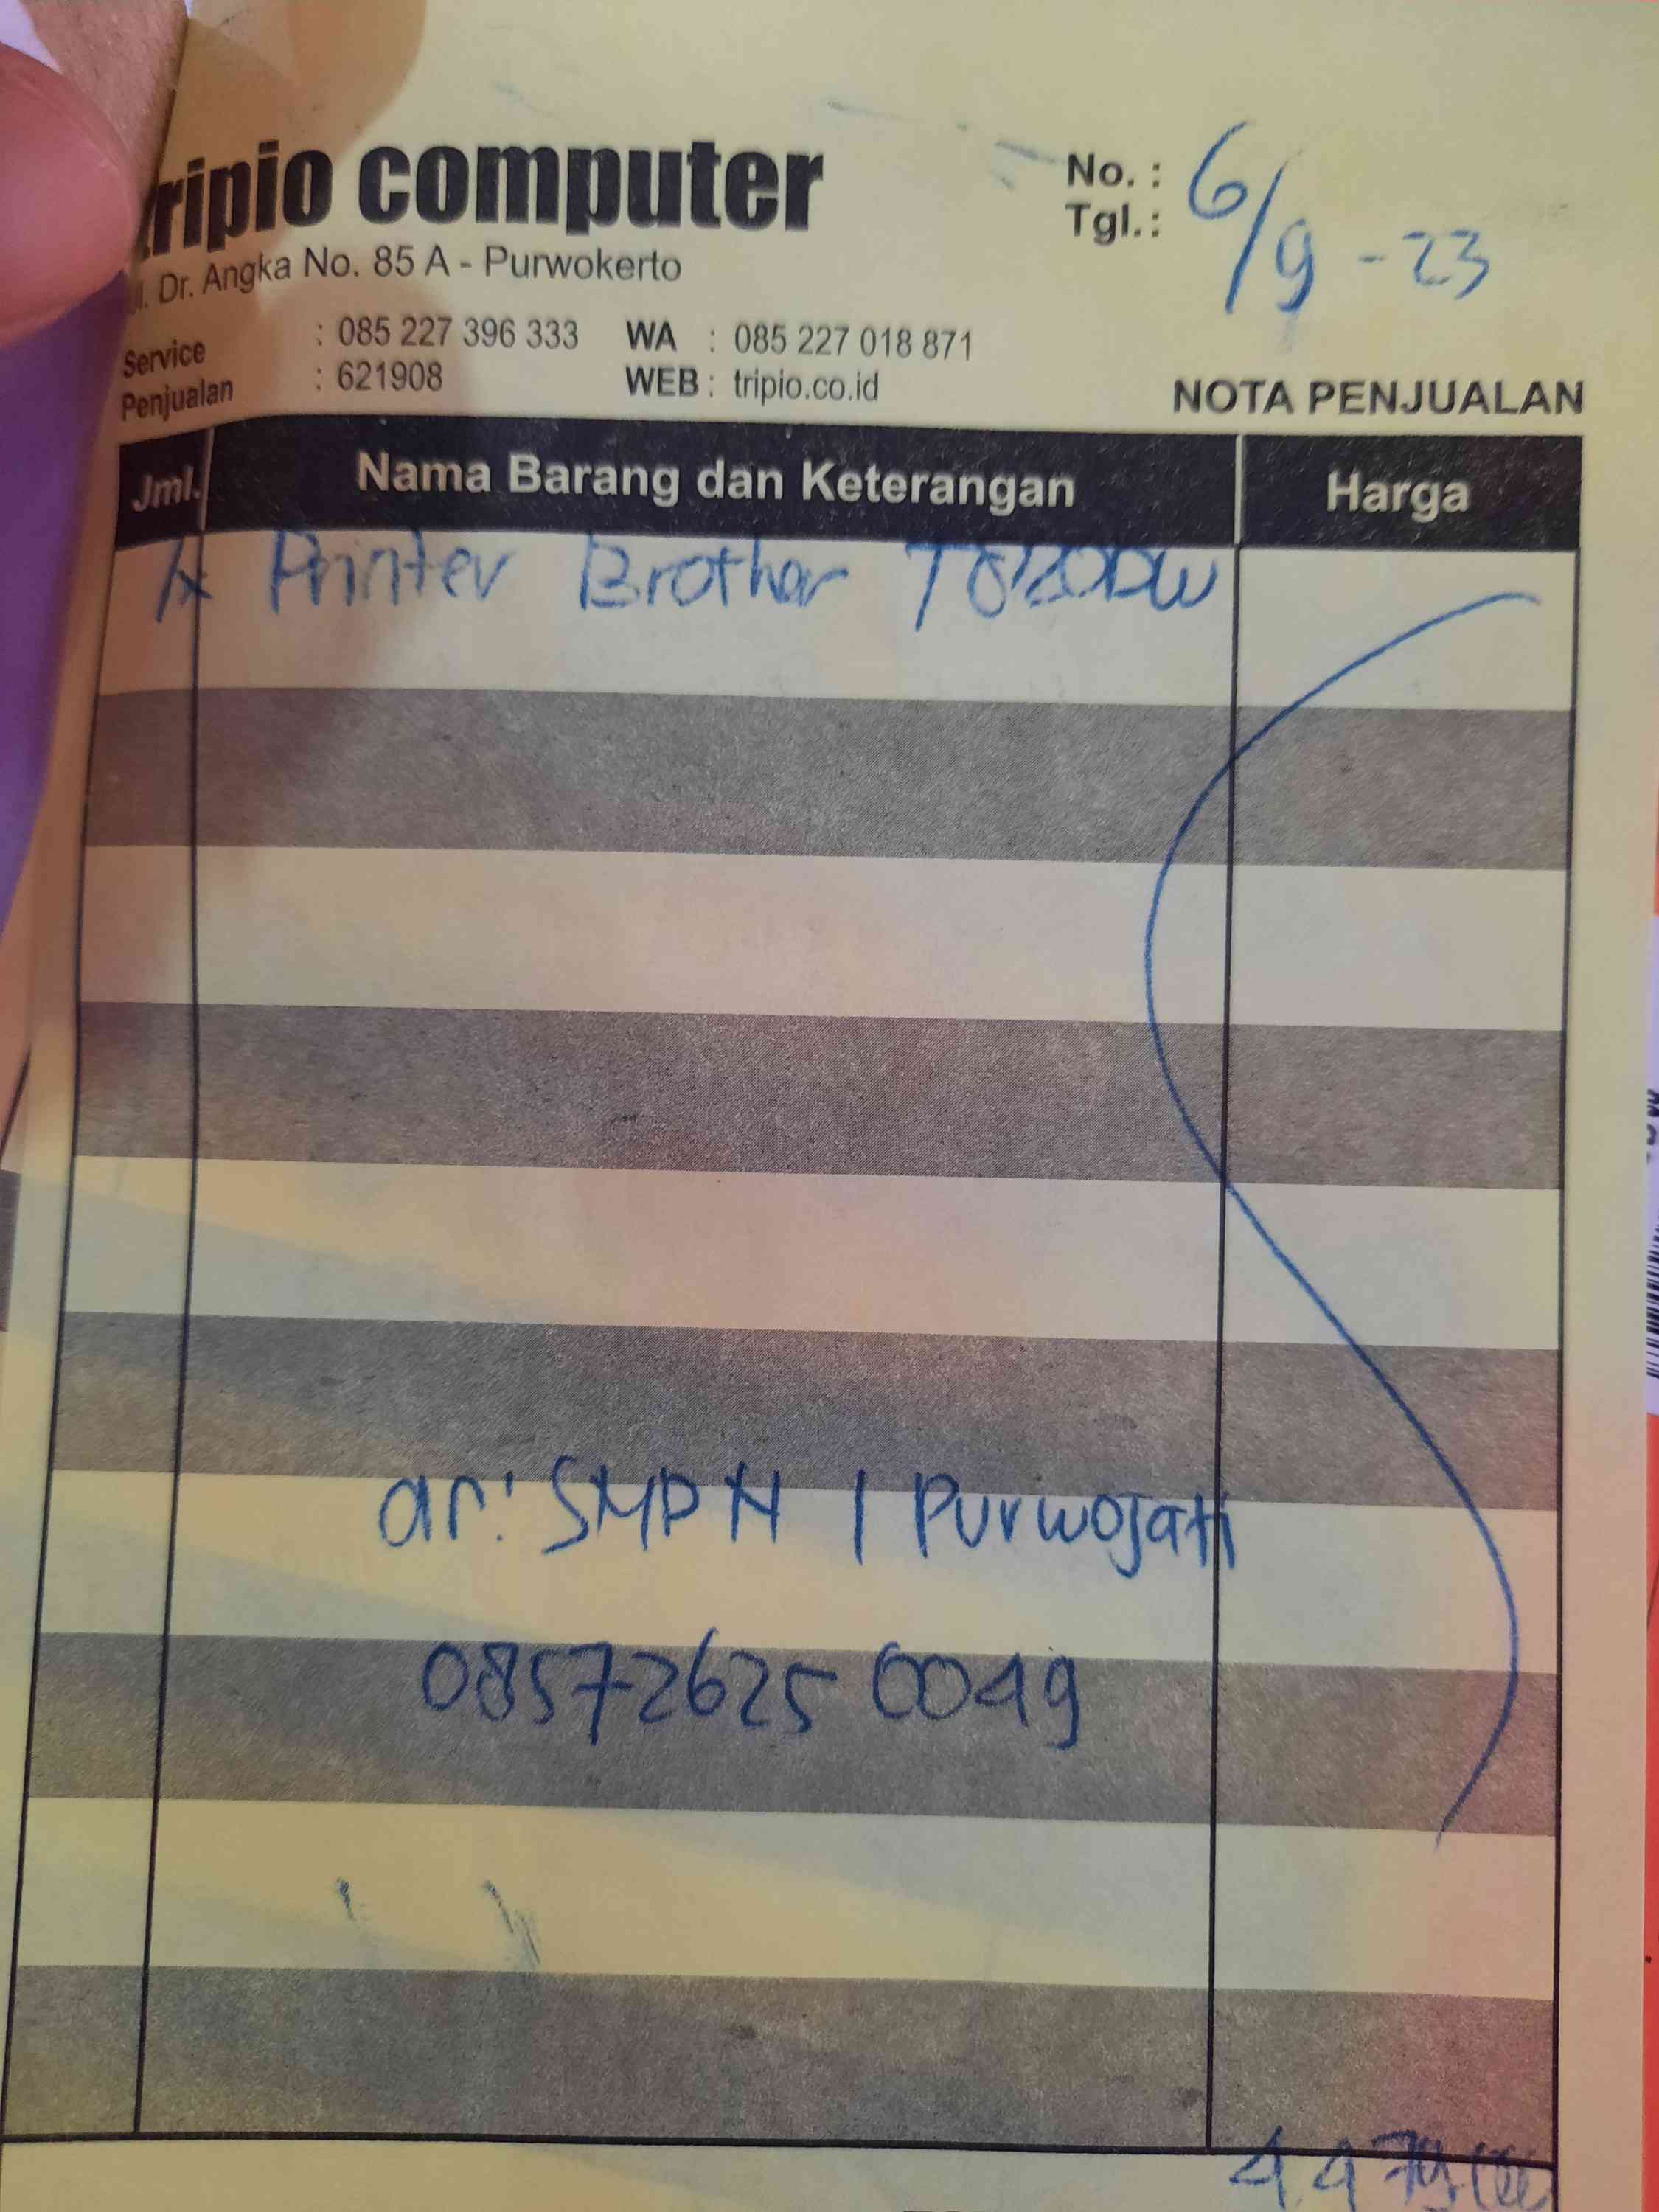 tripio computer
Jl. Dr. Angka No. 85 A - Purwokerto
No. :
Tgl. : 6/9 - 23
Service : 085 227 396 333 WA : 085 227 018 871
Penjualan : 621908 WEB : tripio.co.id
NOTA PENJUALAN
Jml. Nama Barang dan Keterangan Harga
1x Printer Brother T820DW
an: SMP N 1 Purwojati
085726250049